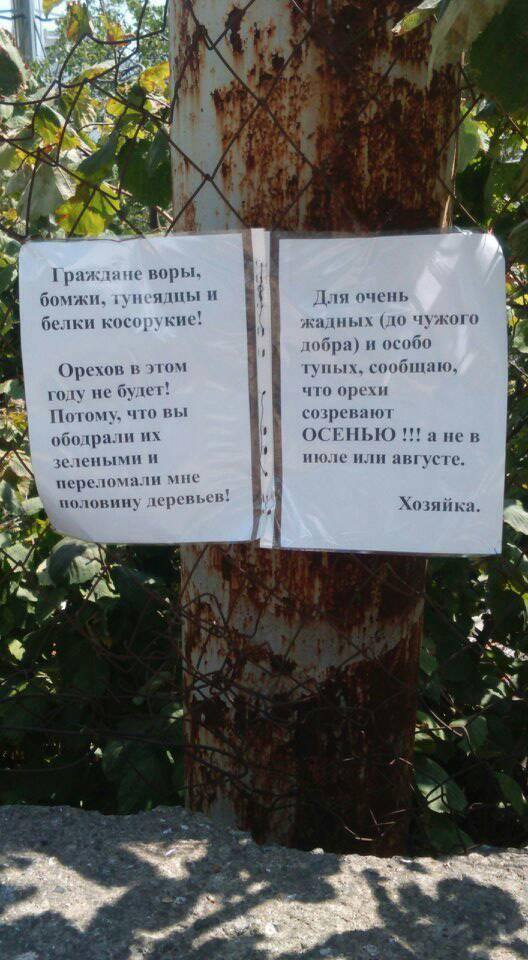 Граждане воры,
бомжи, тунеядцы и
белки косорукие!
Орехов в этом
году не будет!
Потому, что вы
ободрали их
зелеными и
переломали мне
половину деревьев!
Для очень
жадных (до чужого
добра) и особо
тупых, сообщаю,
что орехи
созревают
ОСЕНЬЮ !!! а не в
июле или августе.
Хозяйка.